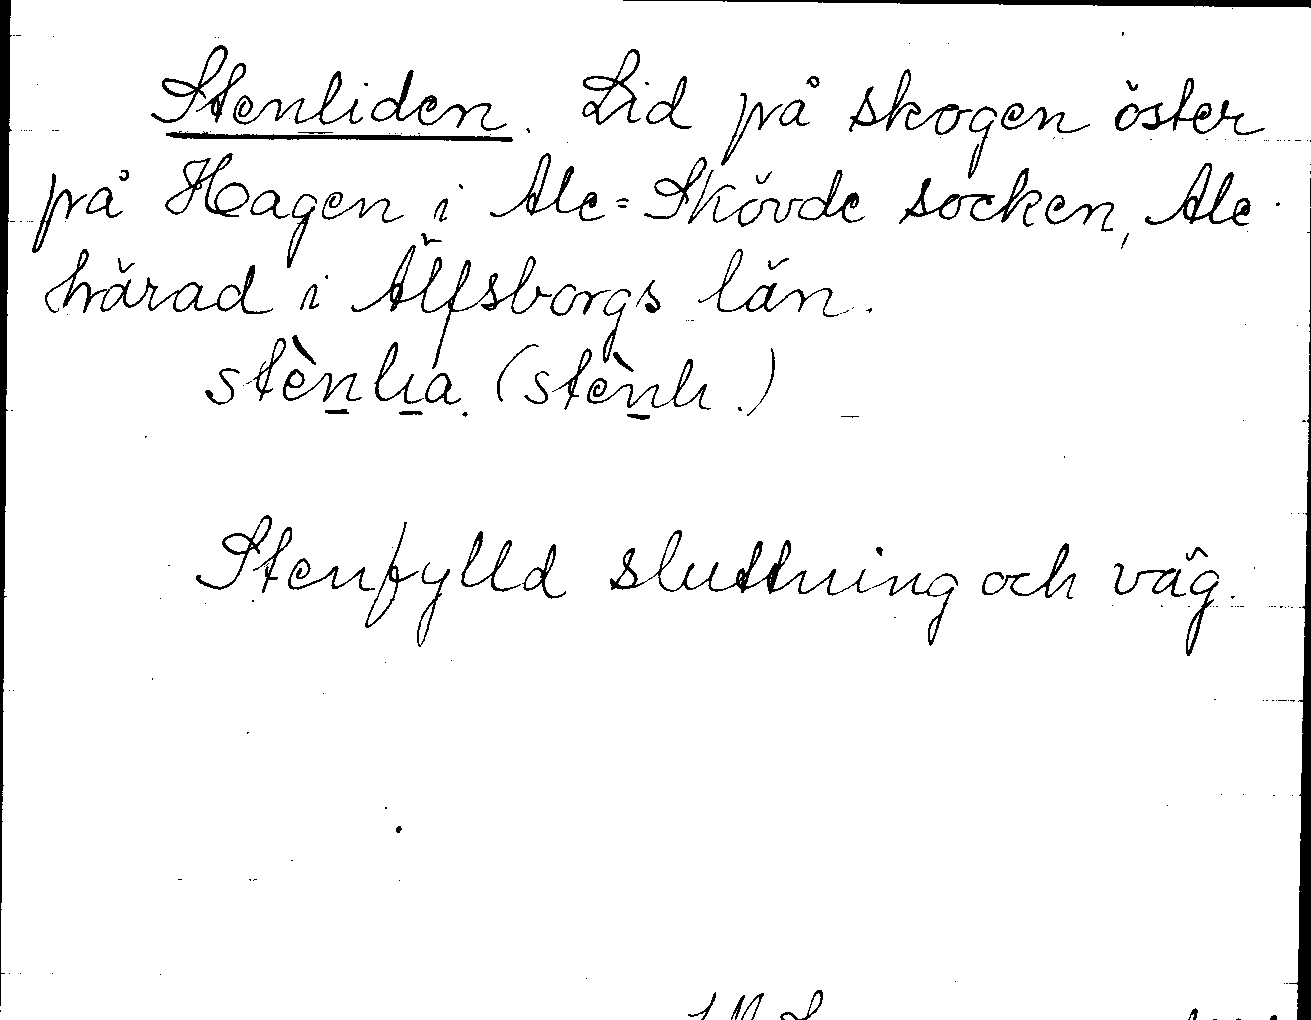 Stenliden. Lid på skogen öster
på Hagen i Ale=Skövde socken, Ale
härad i Älfsborgs län.
stènlıa. (stènlı.)
Stenfylld sluttning och väg.